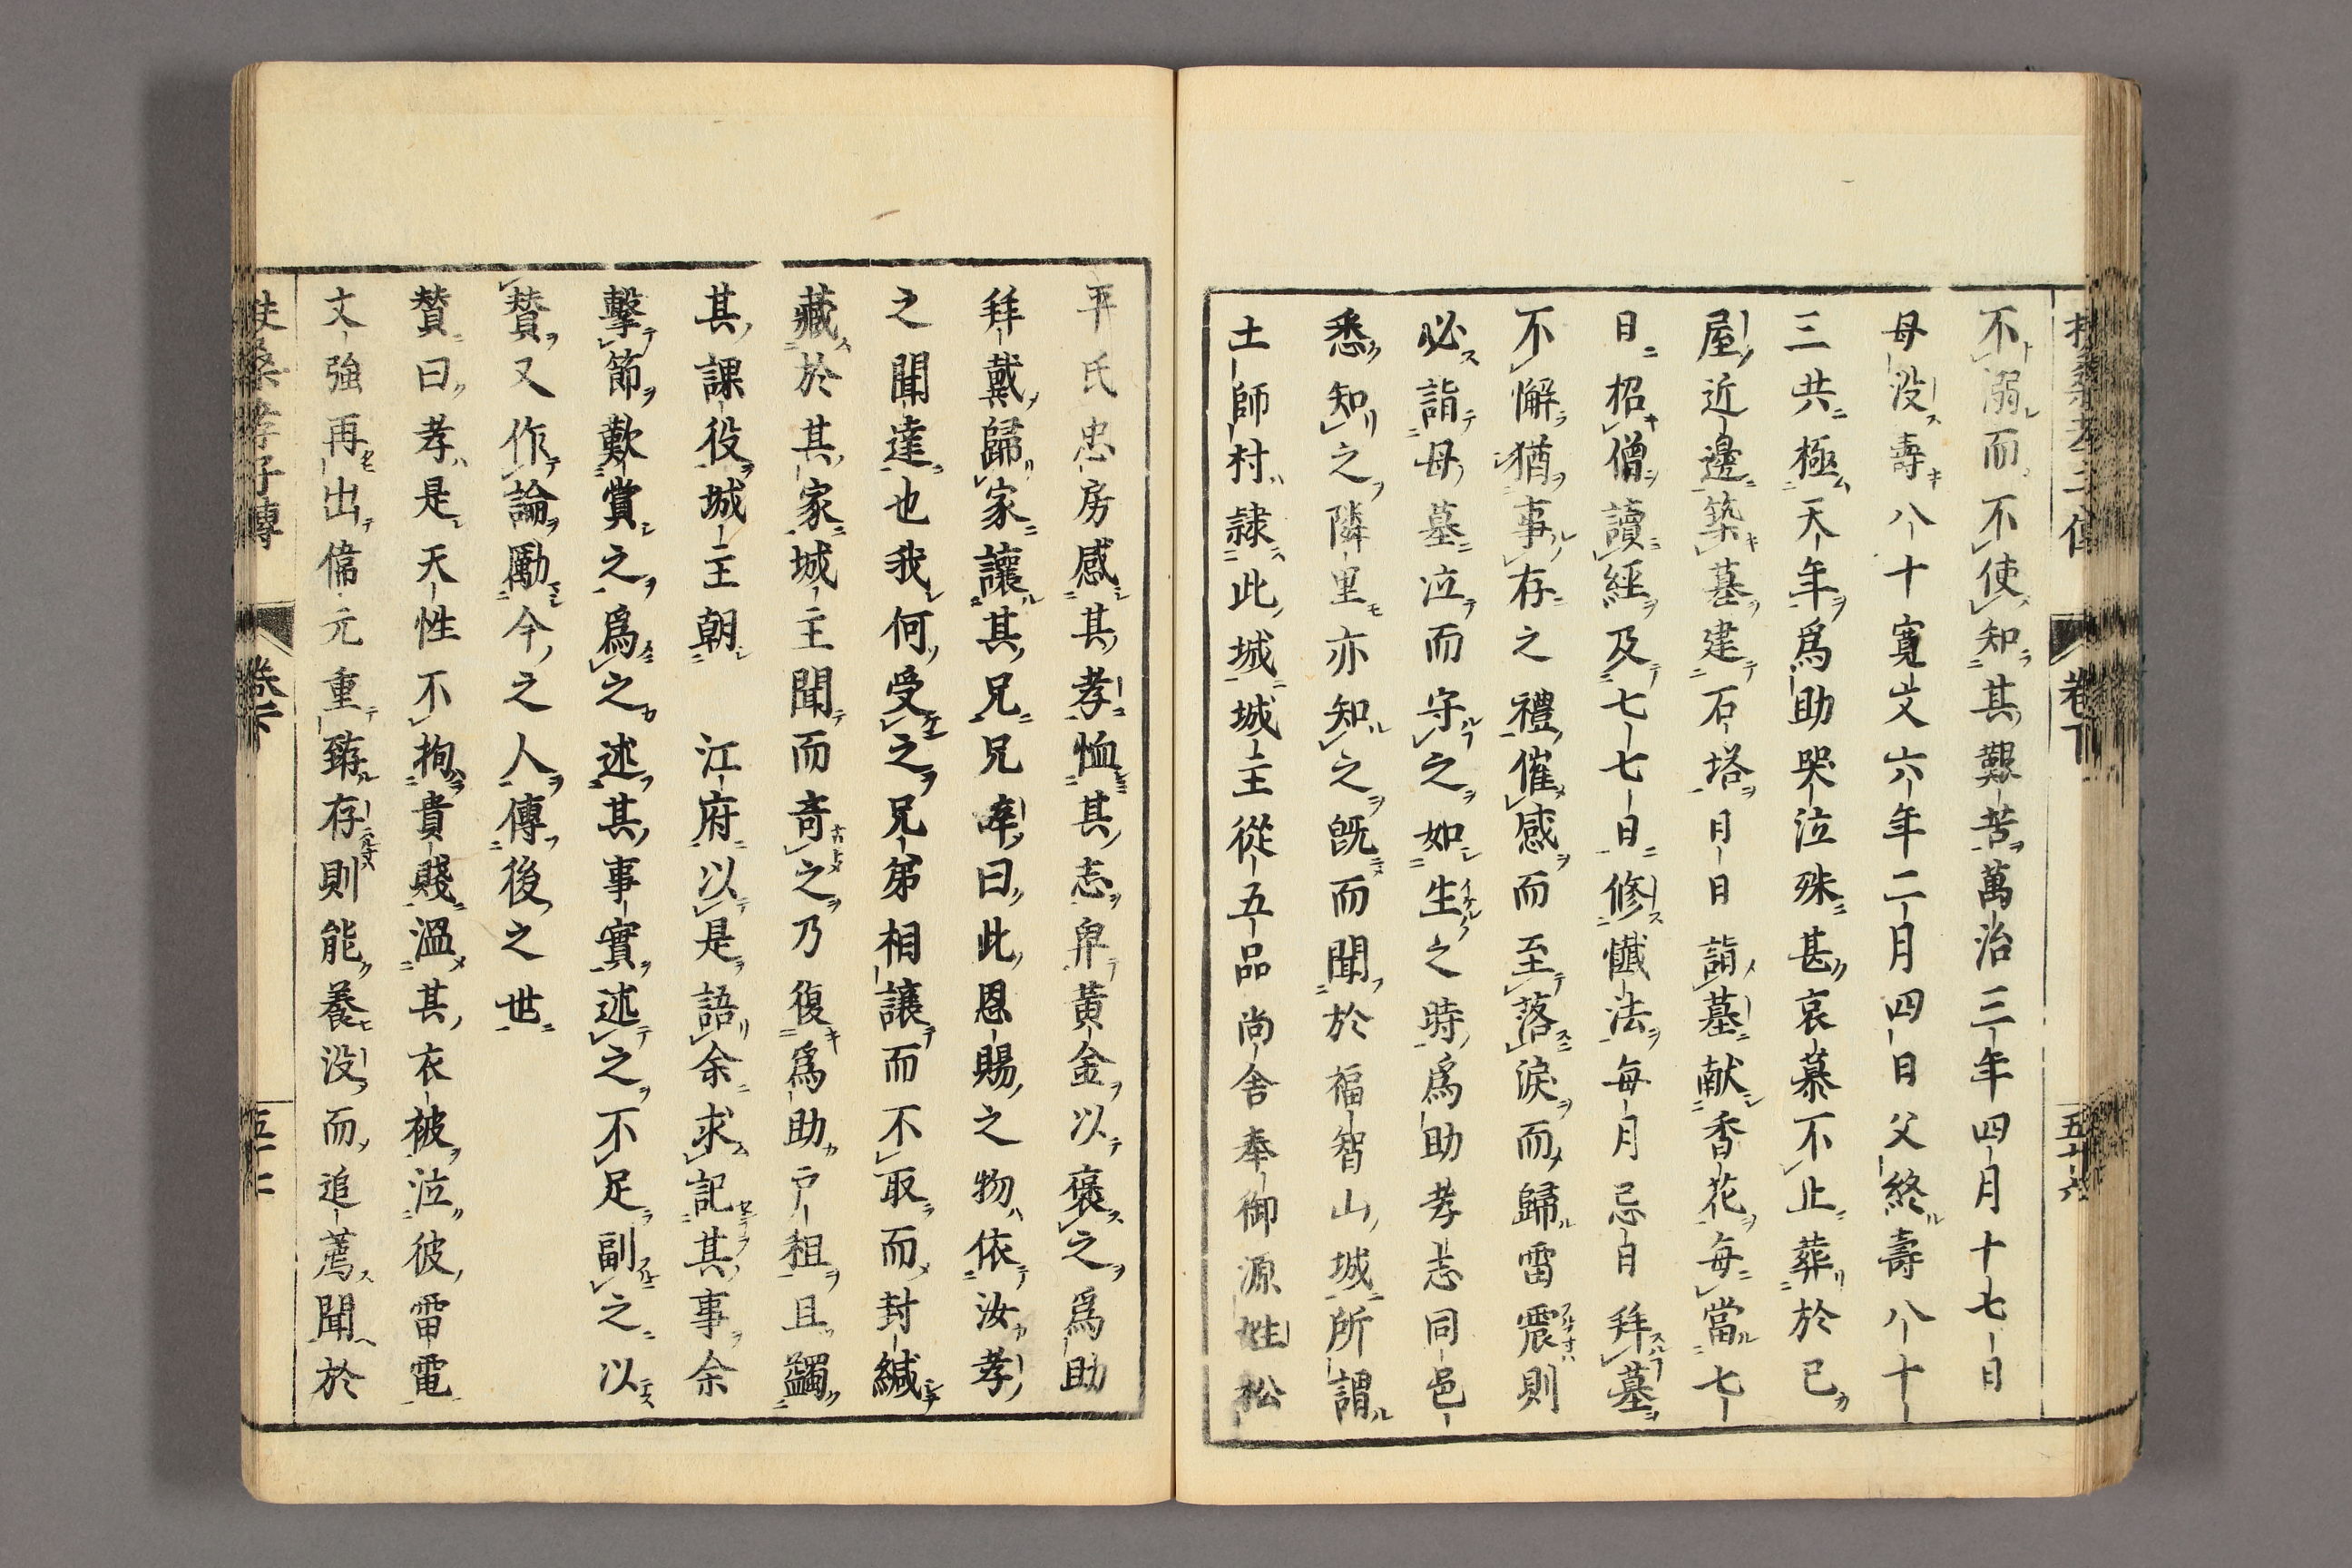 不溺而不使知其艱苦萬治三年四月十七日
母没壽八十寛文六年二月四日父終壽八十
三共極天年爲助哭泣殊甚哀慕不止葬於已
屋近邊築墓建石塔日日詣墓献香花每當七
日招僧讀經及七七日修懺法每月忌日拜墓
不懈猶事存之禮催感而至落淚而歸雷震則
必詣母墓泣而守之如生之時爲助孝志同邑
悉知之隣里亦知之既而聞於福智山城所謂
土師村隷此城城主從五品尚舍奉御源姓松
平氏忠房感其孝恤其志畀黃金以褒之爲助
拜戴歸家讓其兄兄辭曰此恩賜之物依汝孝
之聞達也我何受之兄弟相讓而不取而封緘
藏於其家城主聞而奇之乃復爲助戸租且蠲
其課役城主朝 江府以是語余求記其事余
擊節歎賞之爲之述其事實述之不足副之以
贊又作論勵今之人傳後之世
贊曰孝是天性不拘貴賤溫其衣被泣彼雷電
丈強再出偉元重臻存則能養没而追薦聞於
卷下